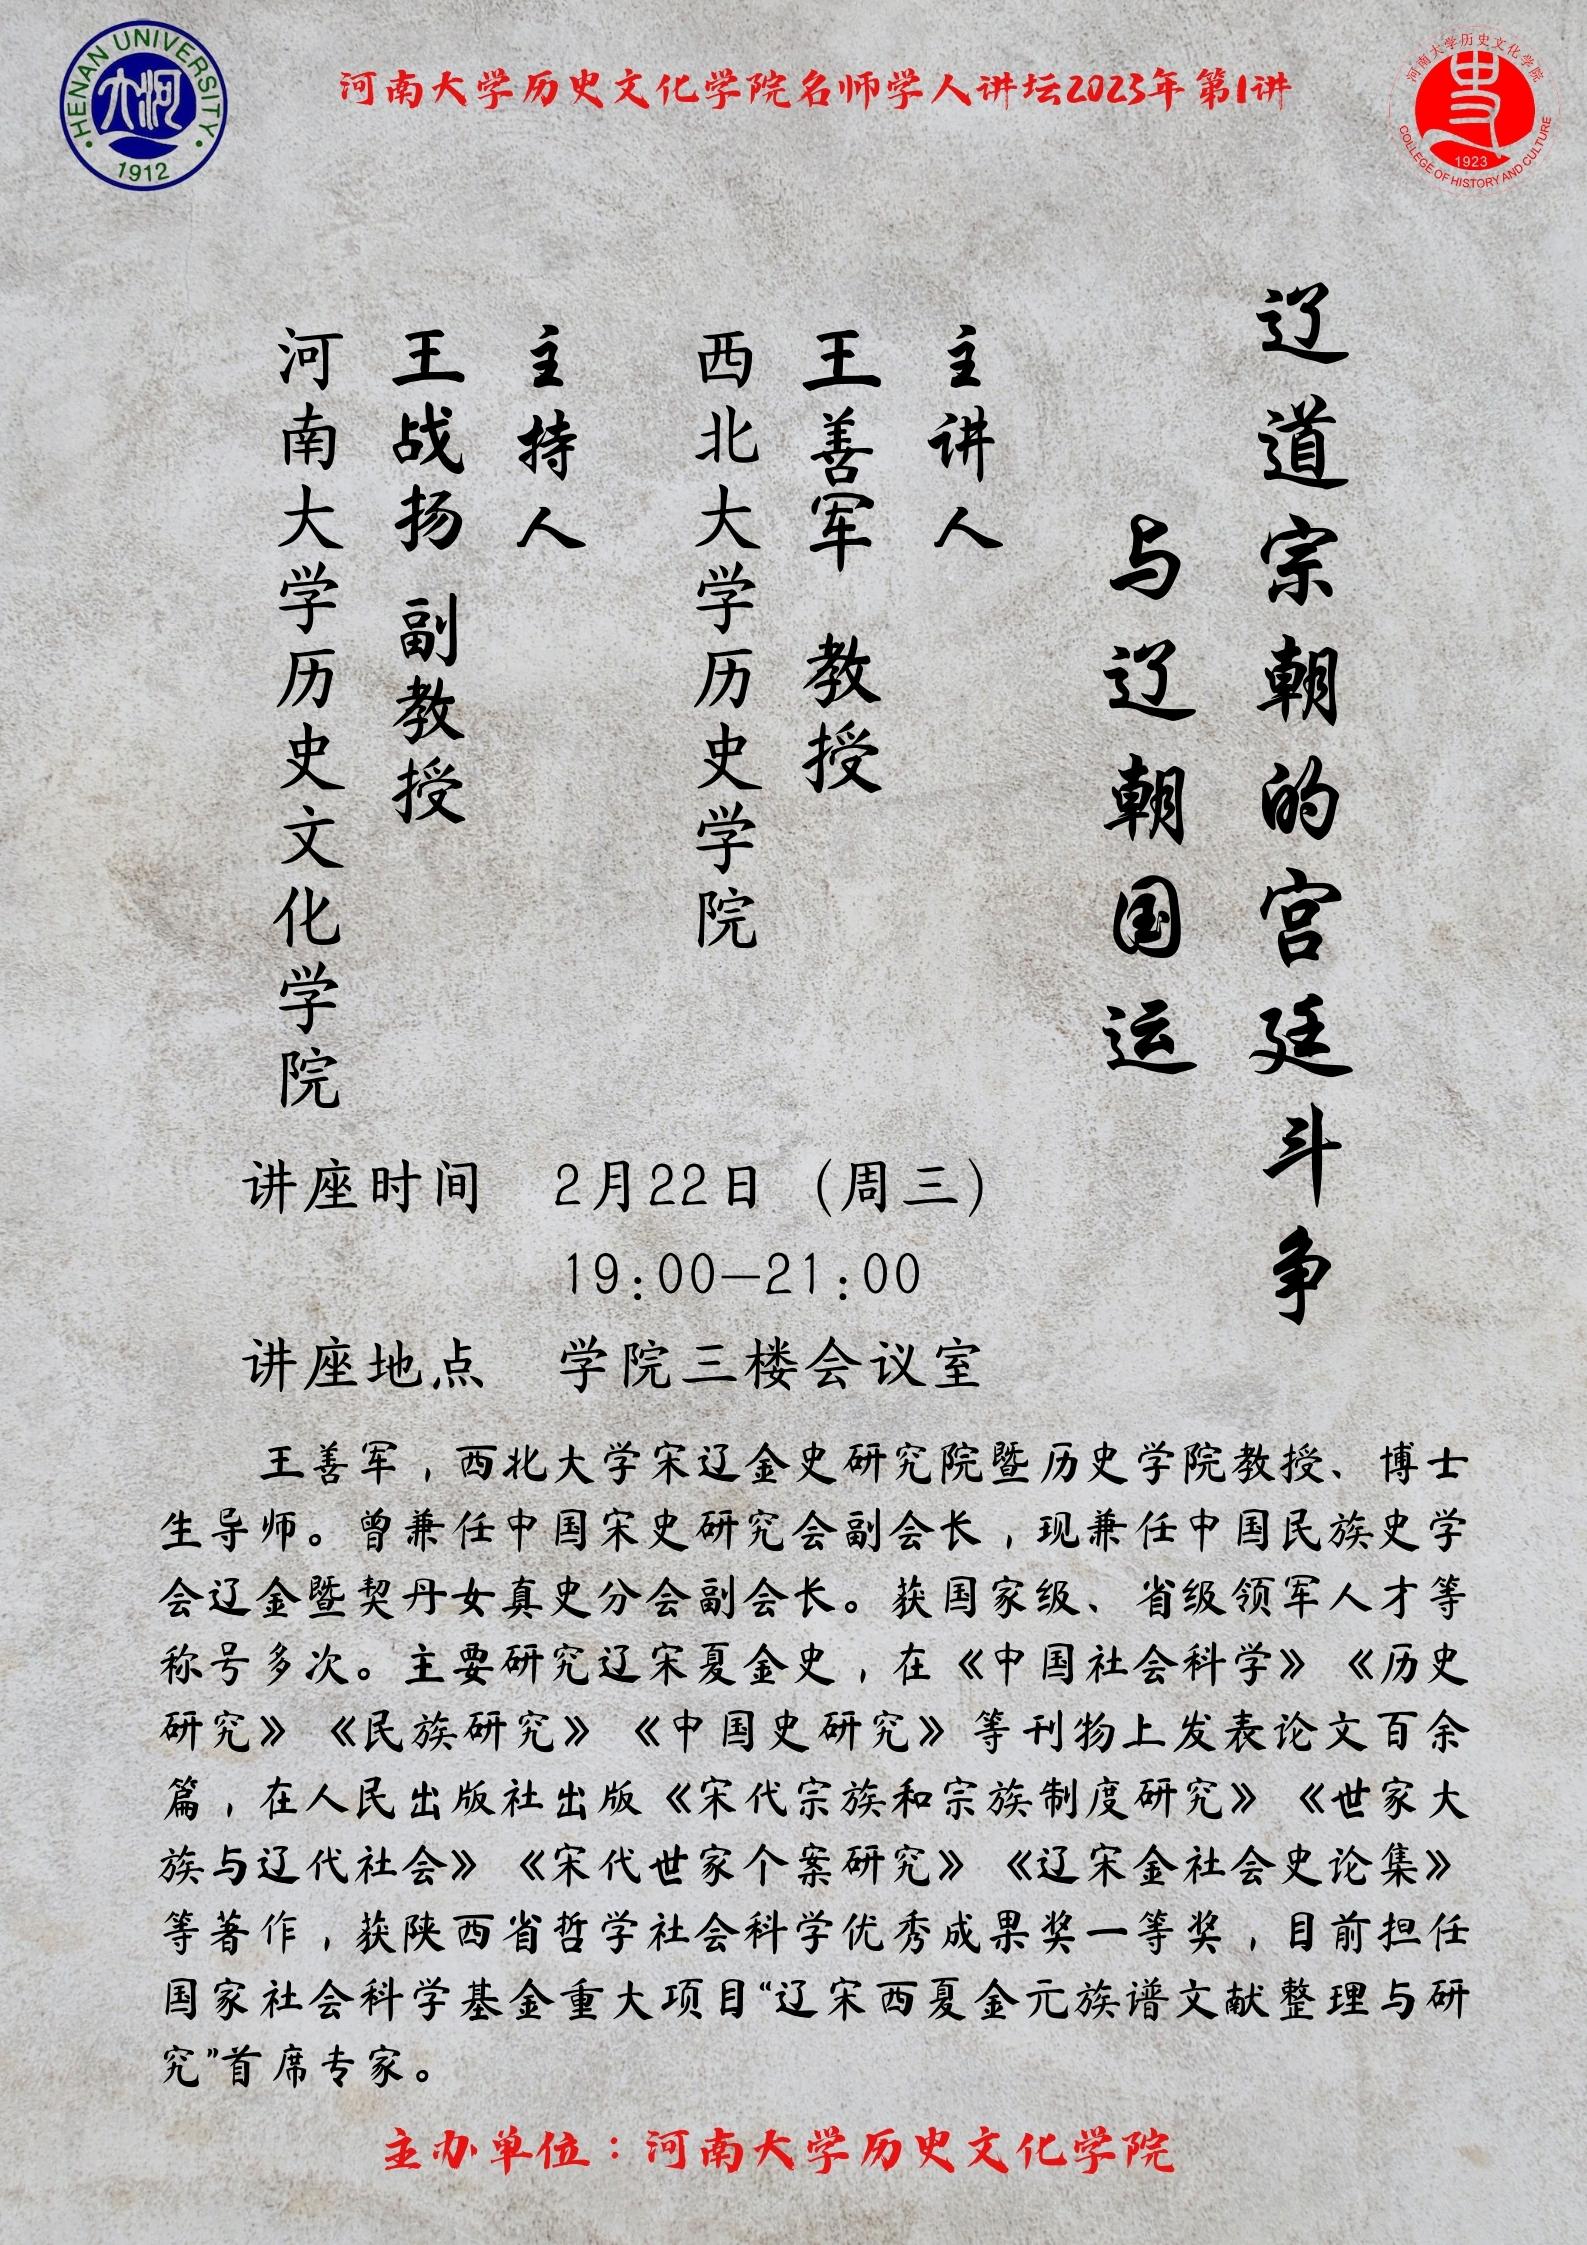 HENAN UNIVERSITY
大河
1912
河南大学历史文化学院名师学人讲坛2023年第1讲
河南大学历史文化学院
史
1923
COLLEGE OF HISTORY AND CULTURE
辽道宗朝的宫廷斗争
与辽朝国运
主讲人
王善军 教授
西北大学历史学院
主持人
王战扬 副教授
河南大学历史文化学院
讲座时间 2月22日（周三）
19:00—21:00
讲座地点 学院三楼会议室
王善军，西北大学宋辽金史研究院暨历史学院教授、博士
生导师。曾兼任中国宋史研究会副会长，现兼任中国民族史学
会辽金暨契丹女真史分会副会长。获国家级、省级领军人才等
称号多次。主要研究辽宋夏金史，在《中国社会科学》《历史
研究》《民族研究》《中国史研究》等刊物上发表论文百余
篇，在人民出版社出版《宋代宗族和宗族制度研究》《世家大
族与辽代社会》《宋代世家个案研究》《辽宋金社会史论集》
等著作，获陕西省哲学社会科学优秀成果奖一等奖，目前担任
国家社会科学基金重大项目“辽宋西夏金元族谱文献整理与研
究”首席专家。
主办单位：河南大学历史文化学院